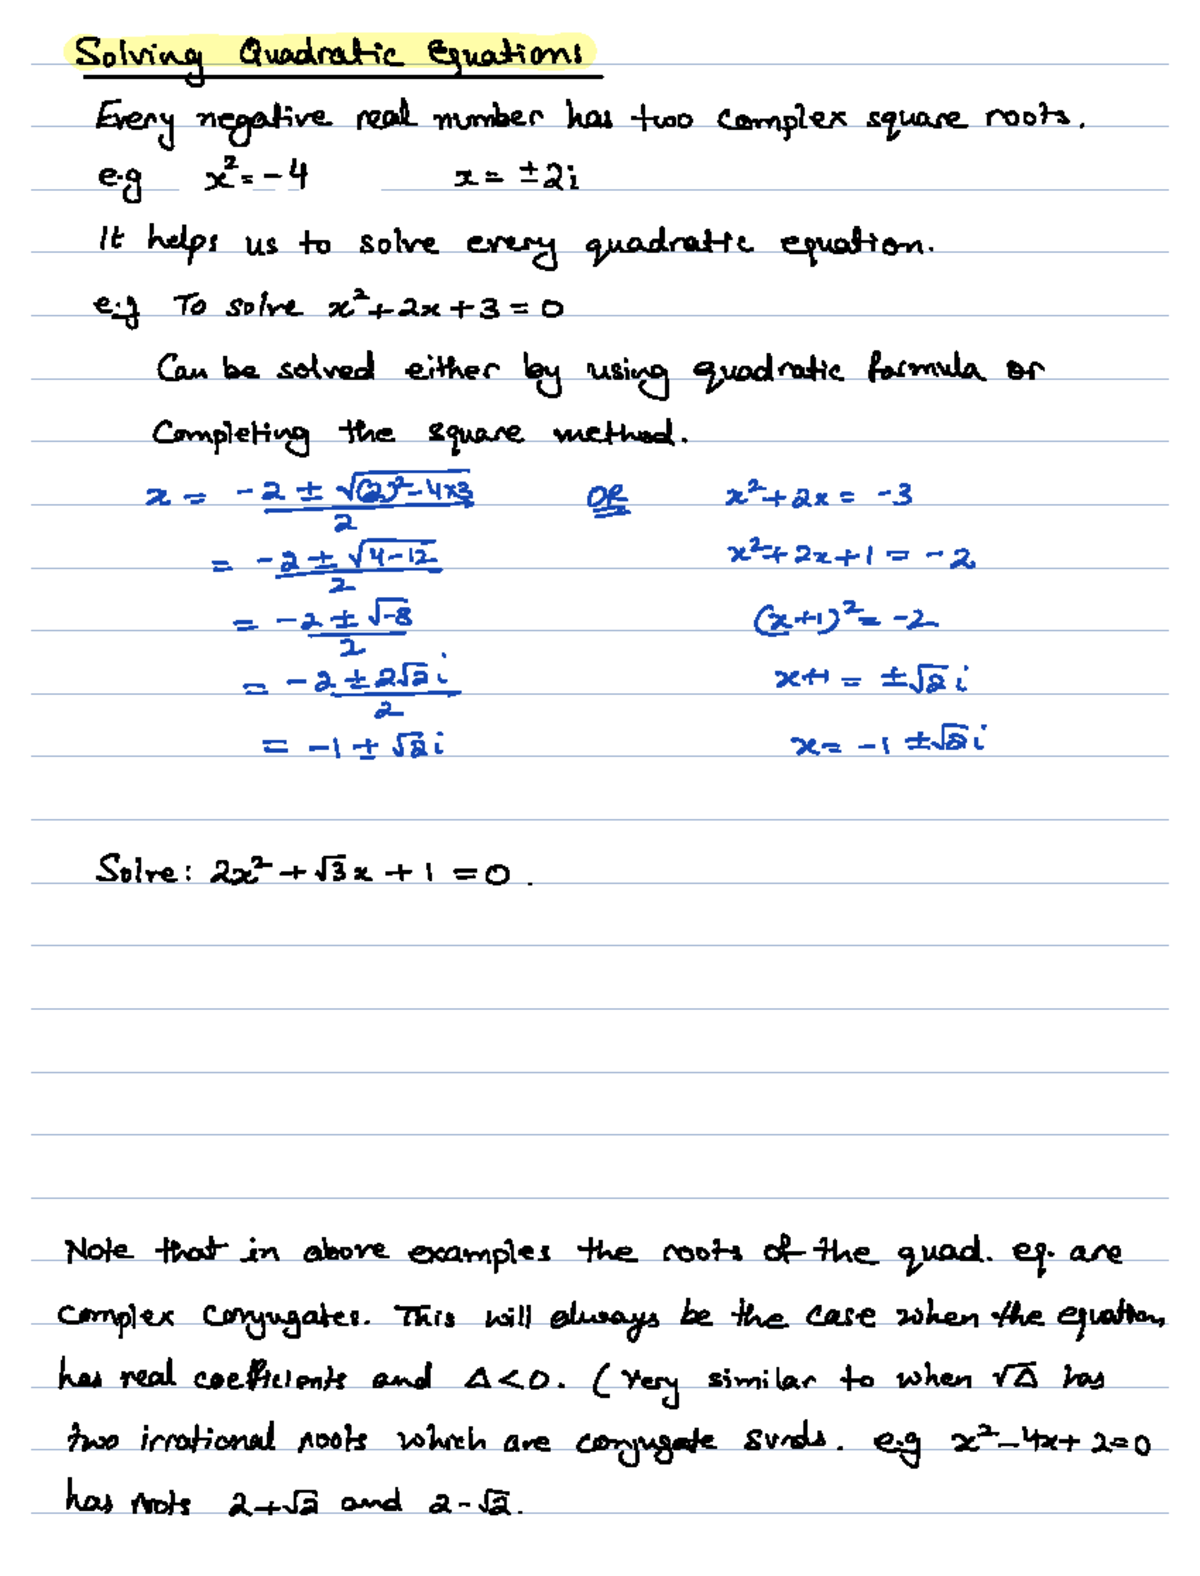 Solving Quadratic Equations
Every negative real number has two complex square roots.
e.g x² = -4 x = ±2i
It helps us to solve every quadratic equation.
e.g To solve x² + 2x + 3 = 0
Can be solved either by using quadratic formula or
Completing the square method.
x = (-2 ± √((2)² - 4×3))/2 OR x² + 2x = -3
= (-2 ± √(4-12))/2 x² + 2x + 1 = -2
= (-2 ± √-8)/2 (x+1)² = -2
= (-2 ± 2√2 i)/2 x+1 = ±√2 i
= -1 ± √2 i x = -1 ± √2 i
Solve: 2x² + √3 x + 1 = 0.
Note that in above examples the roots of the quad. eq. are
complex conjugates. This will always be the case when the equation
has real coefficients and Δ<0. (Very similar to when √Δ has
two irrational roots which are conjugate surds. e.g x² - 4x + 2 = 0
has roots 2+√2 and 2-√2.